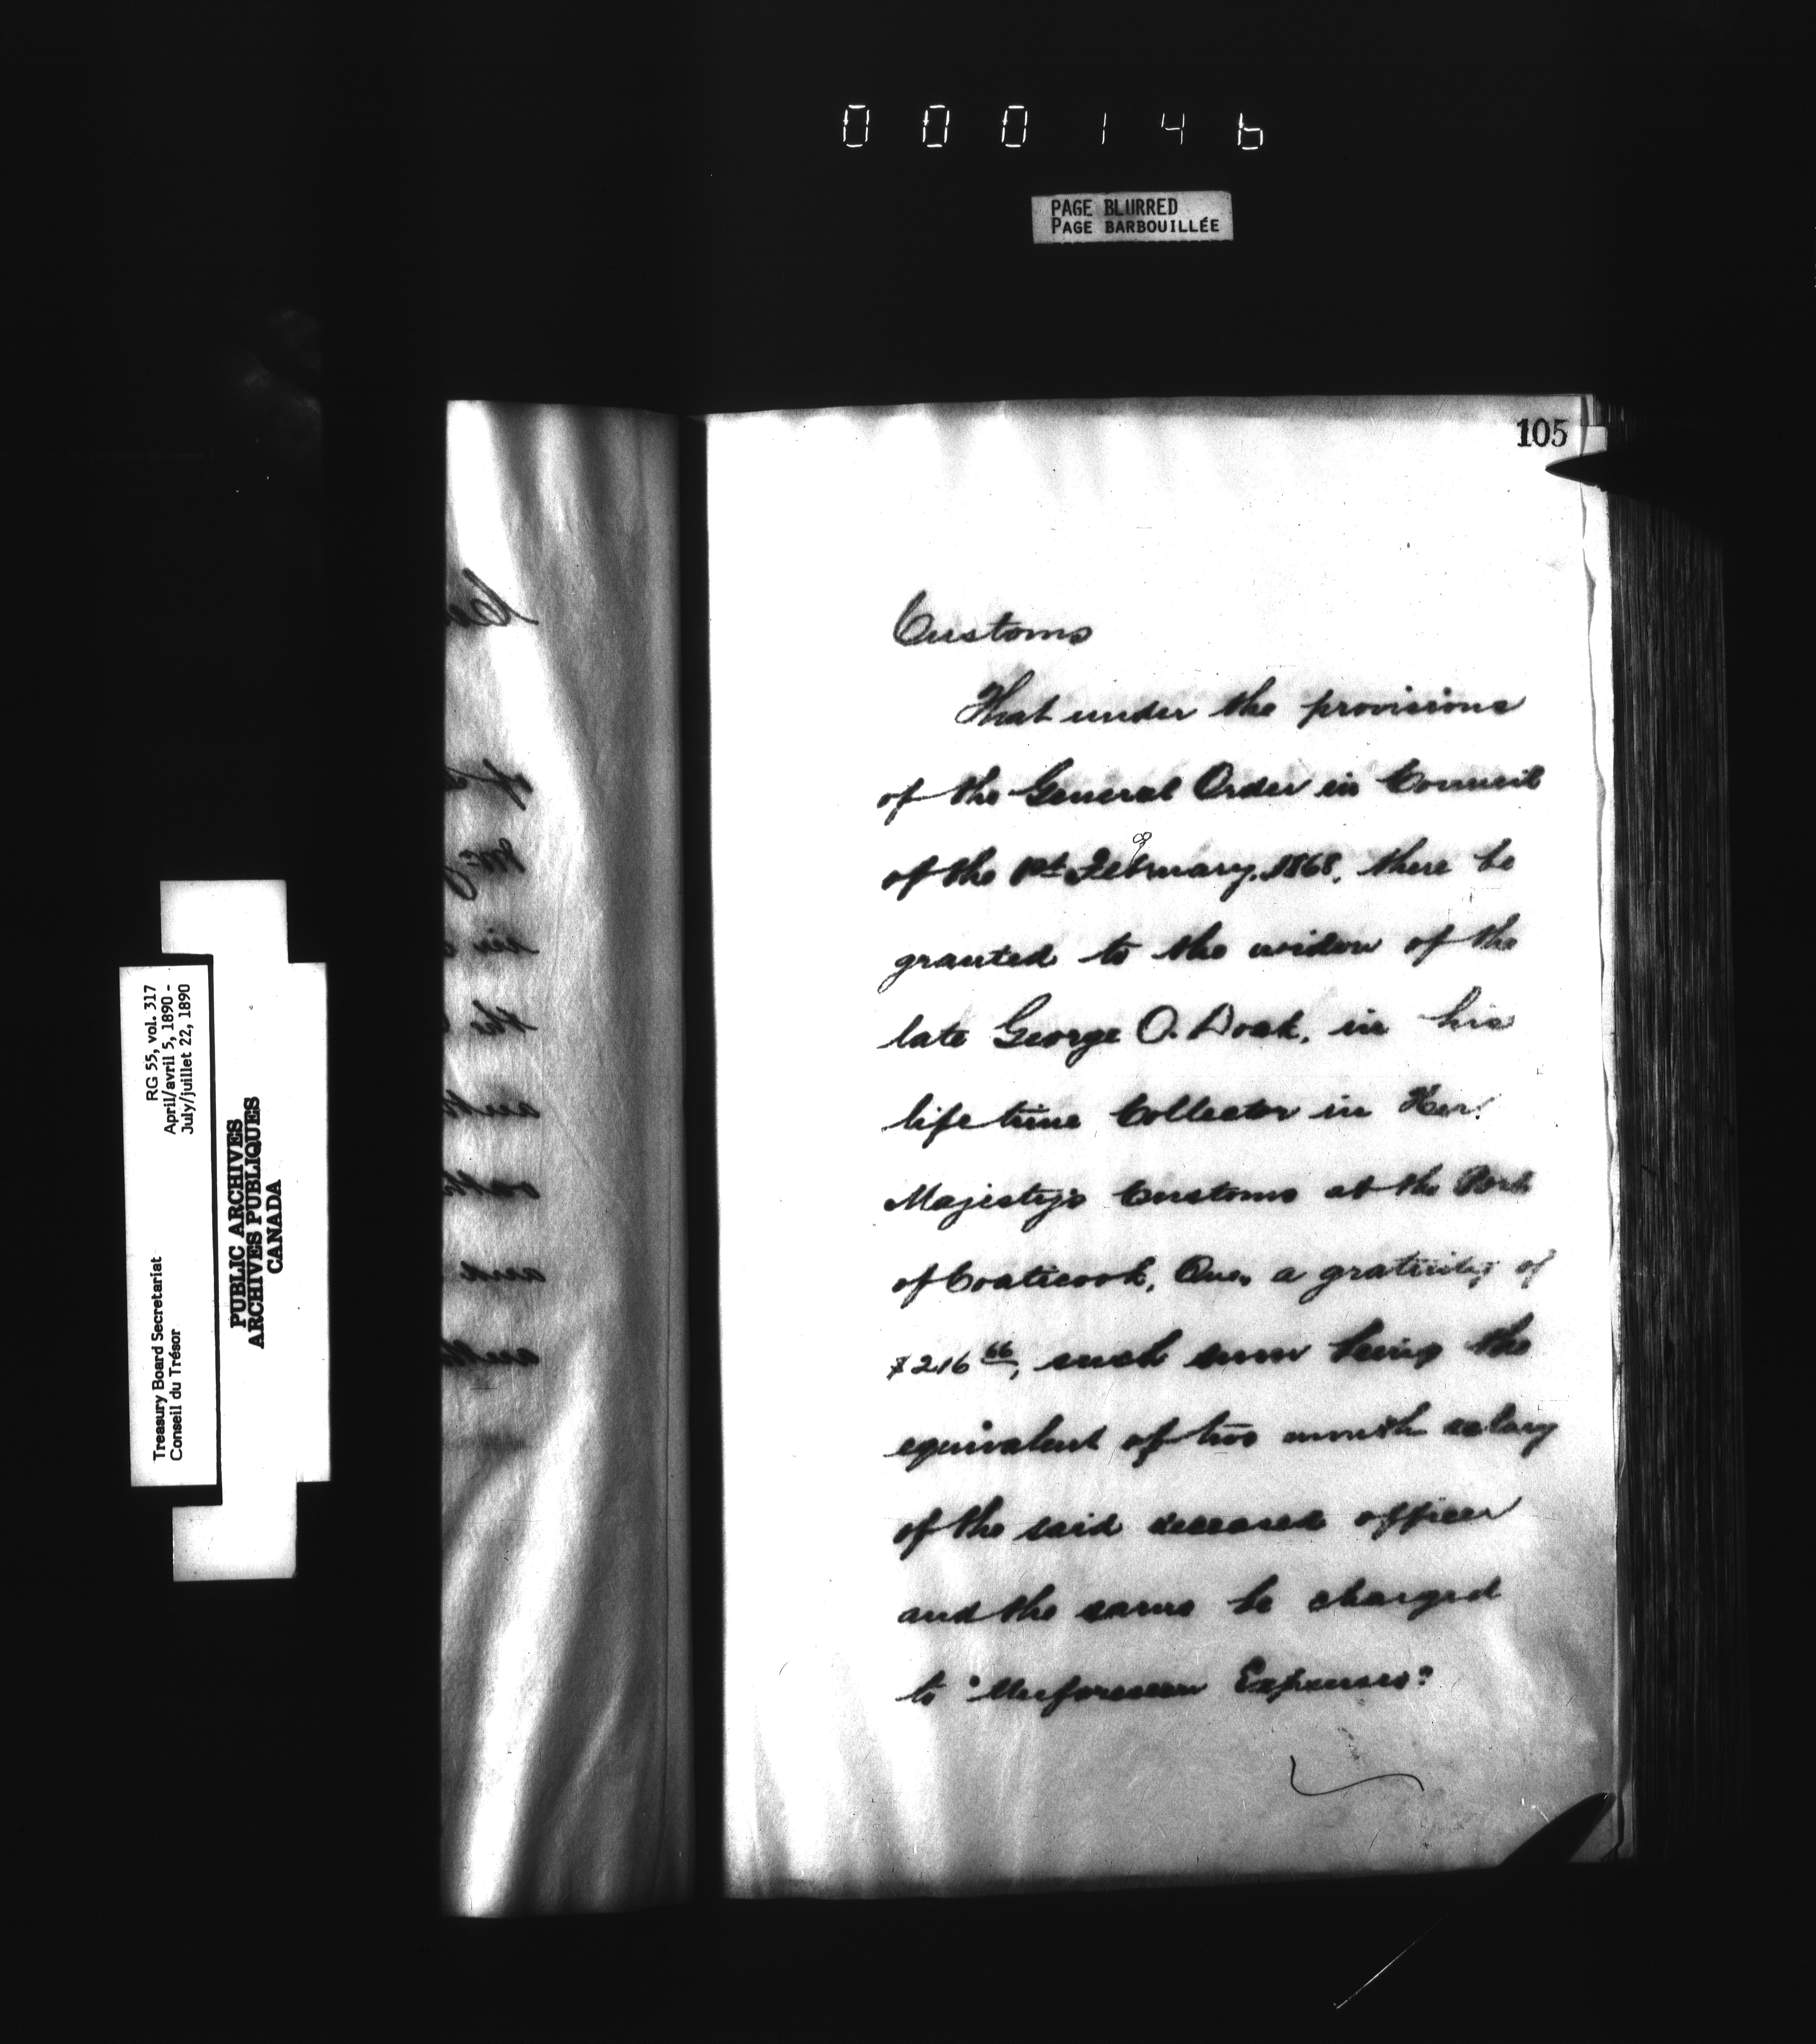 000146
PAGE BLURRED
PAGE BARBOUILLÉE
105
Customs
That under the provisions
of the General Order in Council
of the 1st February, 1868, there be
granted to the widow of the
late George O. Doak, in his
life time Collector in Her
Majesty's Customs at the Port
of Coaticook, Que, a gratuity of
$216 66, such sum being the
equivalent of two month salary
of the said deceased officer
and the same be charged
to "Unforeseen Expenses"
RG 55, vol. 317
April/avril 5, 1890 -
July/juillet 22, 1890
Treasury Board Secretariat
Conseil du Trésor
PUBLIC ARCHIVES
ARCHIVES PUBLIQUES
CANADA